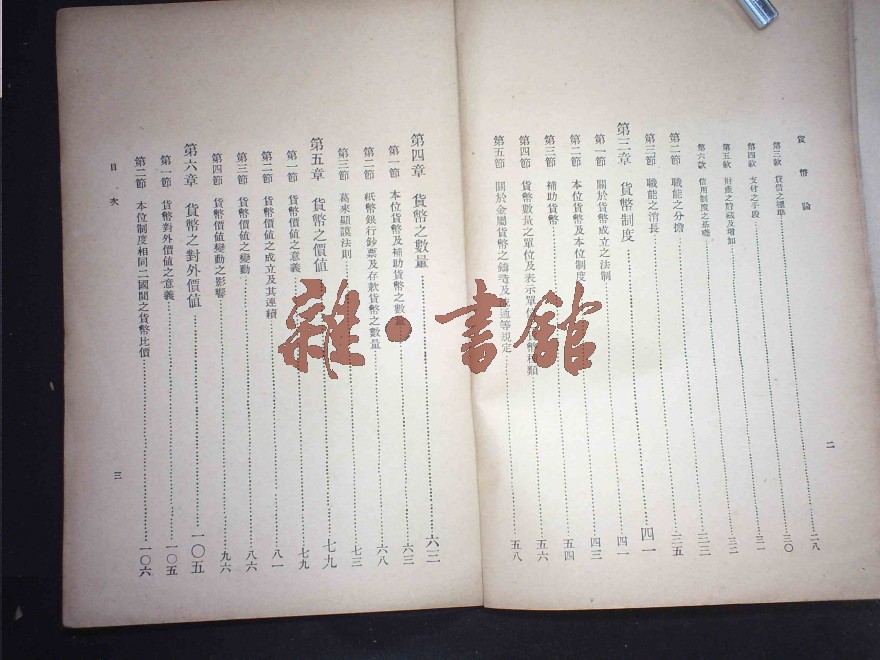 貨幣論
二
第三款 貸借之標準……二八
第四款 支付之手段……三〇
第五款 財產之貯藏及增加……三一
第六款 信用制度之基礎……三二
第二節 職能之分擔……三三
第三節 職能之消長……三五
第三章 貨幣制度……四一
第一節 關於貨幣成立之法制……四一
第二節 本位貨幣及本位制度……四三
第三節 補助貨幣……五四
第四節 貨幣數量之單位及表示單位 貨幣種類……五六
第五節 關於金屬貨幣之鑄造及 通等規定……五八
第四章 貨幣之數量……六三
第一節 本位貨幣及補助貨幣之數量……六三
第二節 紙幣銀行鈔票及存款貨幣之數量……六八
第三節 葛來顯謨法則……七三
第五章 貨幣之價值……七九
第一節 貨幣價值之意義……七九
第二節 貨幣價值之成立及其連續……八一
第三節 貨幣價值之變動……八六
第四節 貨幣價值變動之影響……九六
第六章 貨幣之對外價值……一〇五
第一節 貨幣對外價值之意義……一〇五
第二節 本位制度相同二國間之貨幣比價……一〇六
目次
三
雜·書館